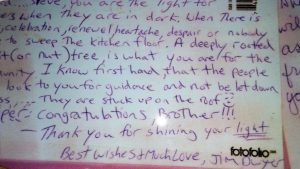 Steve, you are the light for
es when they are in dark. When There is
celebration, renewal, heartache, despair or nobody
to sweep The kitchen floor. A deeply rooted
it (or nut) tree, is what you are for the
unity. I know first hand, that the people
look to you for guidance and not be let down
They are stuck up on the roof
per- congratulations, Brother!!!
— Thank you for shining your light
fotofolio
Best wishes & Much Love, Jim Dwyer